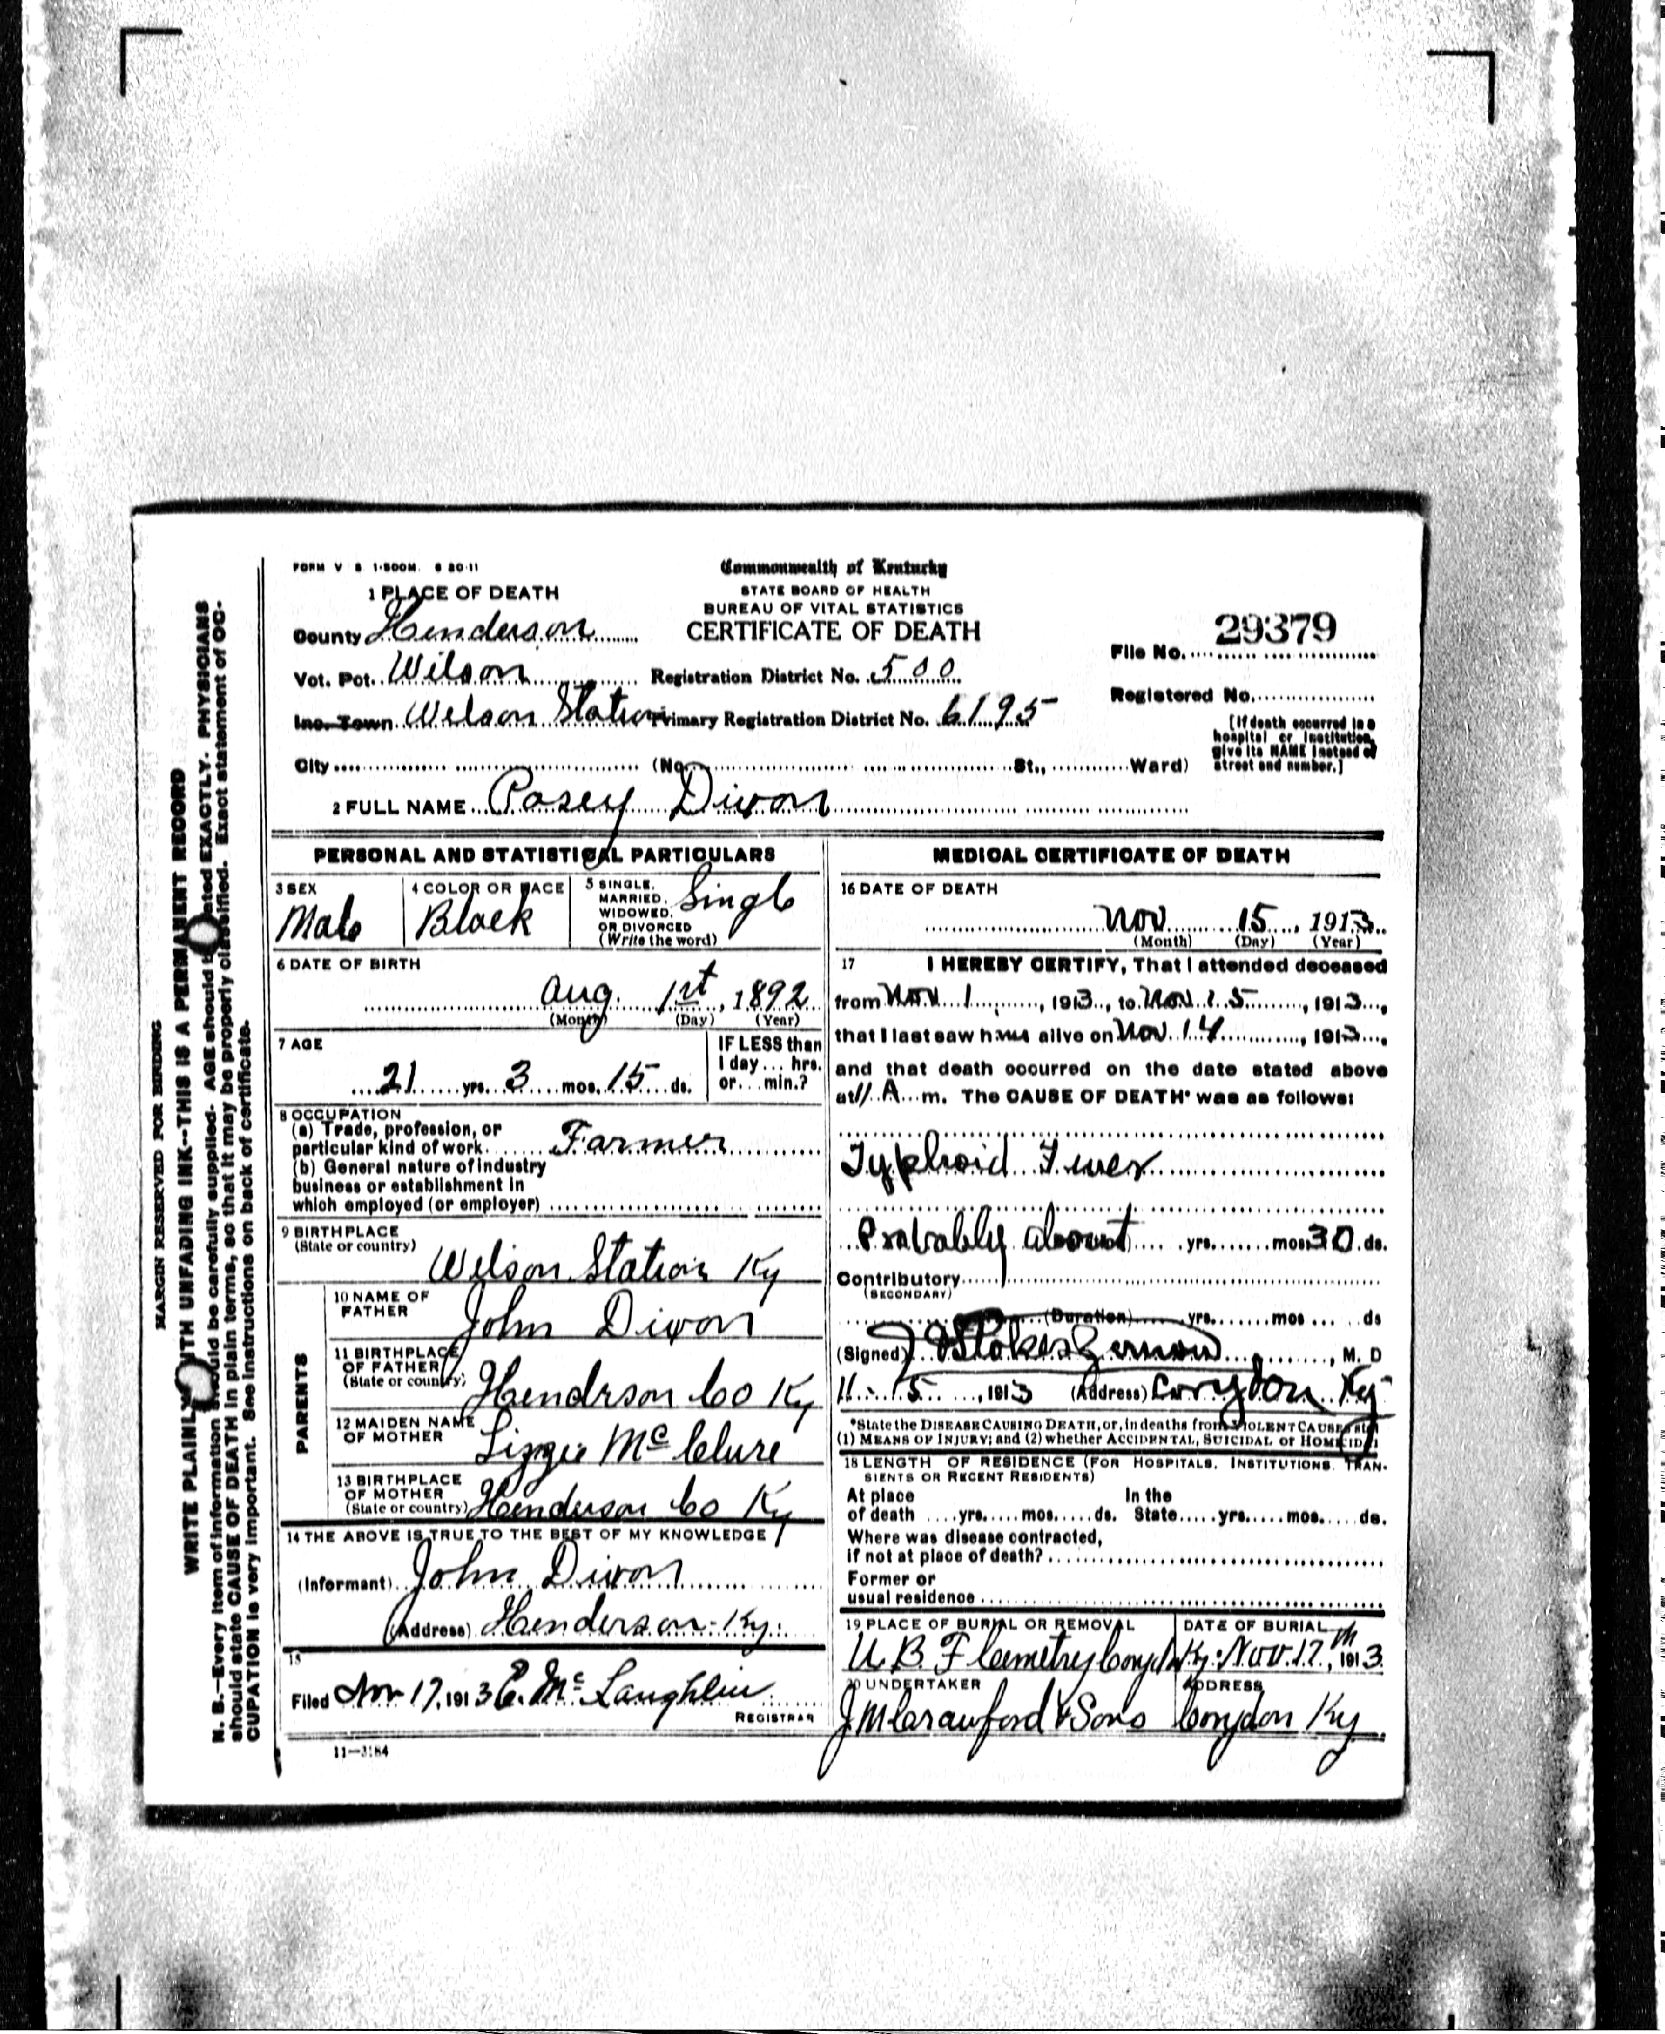 FORM V S 1-500M. 8 20-11
Commonwealth of Kentucky
STATE BOARD OF HEALTH
BUREAU OF VITAL STATISTICS
CERTIFICATE OF DEATH
1 PLACE OF DEATH
County Henderson
Vot. Pct. Wilson
Registration District No. 500
Inc. Town Wilson Station
Primary Registration District No. 6195
City (No. St., Ward)
File No. 29379
Registered No.
[If death occurred in a
hospital or institution,
give its NAME instead of
street and number.]
2 FULL NAME Posey Dixon
PERSONAL AND STATISTICAL PARTICULARS
3 SEX
Male
4 COLOR OR RACE
Black
5 SINGLE,
MARRIED,
WIDOWED,
OR DIVORCED
(Write the word)
Single
6 DATE OF BIRTH
Aug. 1st, 1892
(Month) (Day) (Year)
7 AGE
21 yrs. 3 mos. 15 ds.
IF LESS than
1 day... hrs.
or... min.?
8 OCCUPATION
(a) Trade, profession, or
particular kind of work. Farmer
(b) General nature of industry
business or establishment in
which employed (or employer)
9 BIRTHPLACE
(State or country)
Wilson Station Ky
PARENTS
10 NAME OF
FATHER
John Dixon
11 BIRTHPLACE
OF FATHER
(State or country)
Hendrson Co Ky
12 MAIDEN NAME
OF MOTHER
Lizzie McClure
13 BIRTHPLACE
OF MOTHER
(State or country)
Henderson Co Ky
14 THE ABOVE IS TRUE TO THE BEST OF MY KNOWLEDGE
(Informant) John Dixon
(Address) Henderson Ky.
15
Filed Nov 17, 1913 E. McLaughlin
REGISTRAR
11-3184
MEDICAL CERTIFICATE OF DEATH
16 DATE OF DEATH
Nov 15, 1913
(Month) (Day) (Year)
17 I HEREBY CERTIFY, That I attended deceased
from Nov 1, 1913, to Nov 15, 1913,
that I last saw him alive on Nov. 14, 1913,
and that death occurred on the date stated above
at 11 A. m. The CAUSE OF DEATH* was as follows:
Typhoid Fever
Probably about yrs. mos. 30 ds.
Contributory
(SECONDARY)
(Duration) yrs. mos ds
(Signed) J Stokes , M. D
11. 15, 1913 (Address) Corydon Ky
*State the DISEASE CAUSING DEATH, or, in deaths from VIOLENT CAUSES state
(1) MEANS OF INJURY; and (2) whether ACCIDENTAL, SUICIDAL or HOMICIDAL
18 LENGTH OF RESIDENCE (FOR HOSPITALS, INSTITUTIONS, TRAN-
SIENTS OR RECENT RESIDENTS)
At place
of death yrs. mos. ds.
In the
State yrs. mos. ds.
Where was disease contracted,
if not at place of death?
Former or
usual residence
19 PLACE OF BURIAL OR REMOVAL
U B F Cemetry Corydon Ky.
DATE OF BURIAL
Nov. 17, th 1913
20 UNDERTAKER
J. M Crawford & Sons
ADDRESS
Corydon Ky
MARGIN RESERVED FOR BINDING
WRITE PLAINLY WITH UNFADING INK--THIS IS A PERMANENT RECORD
N. B.—Every item of information should be carefully supplied. AGE should be stated EXACTLY. PHYSICIANS
should state CAUSE OF DEATH in plain terms, so that it may be properly classified. Exact statement of OC-
CUPATION is very important. See instructions on back of certificate.